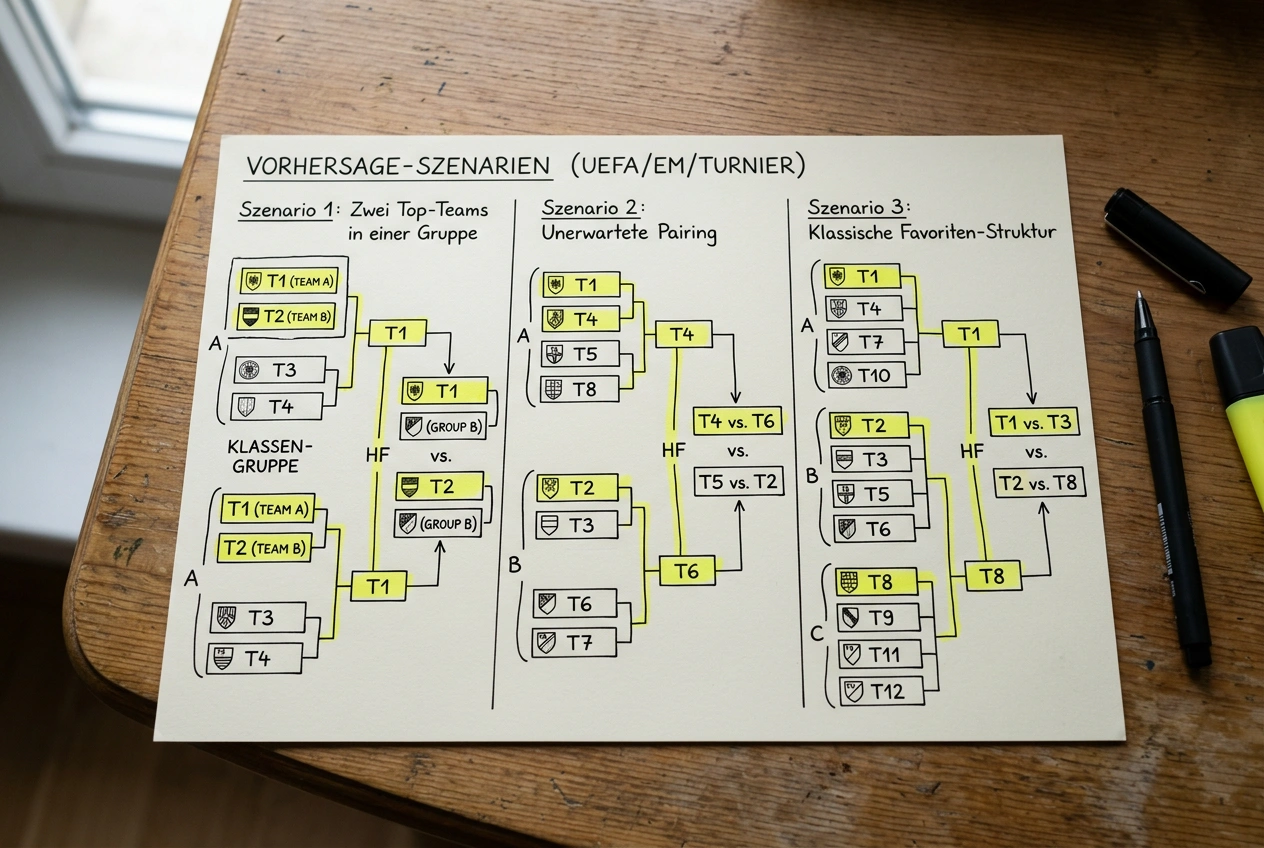 VORHERSAGE-SZENARIEN (UEFA/EM/TURNIER)
Szenario 1: Zwei Top-Teams
in einer Gruppe
T1 (TEAM A)
T2 (TEAM B)
A
T3
T4
T1
T1
(GROUP B)
vs.
T2
(GROUP B)
HF
KLASSEN-
GRUPPE
T1 (TEAM A)
T2 (TEAM B)
A
T3
T4
T1
Szenario 2:
Unerwartete Pairing
A
T1
T4
T5
T8
T4
HF
T4 vs. T6
vs.
T5 vs. T2
B
T2
T3
T6
T7
T6
Szenario 3:
Klassische Favoriten-Struktur
A
T1
T4
T7
T10
T1
HF
T1 vs. T3
vs.
T2 vs. T8
B
T2
T3
T5
T6
C
T8
T9
T11
T12
T8